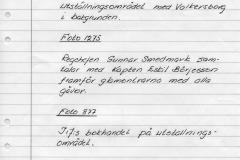 Utställningsområdet med Volkersborg
i bakgrunden.
Foto 1275
Regehejen Gunnar Smedmark sam-
talar med Kapten Eskil Börjesson
framför glasmontrarna med alla
gåvor.
Foto 877
J:f:s bokhandel på utställnings-
området.